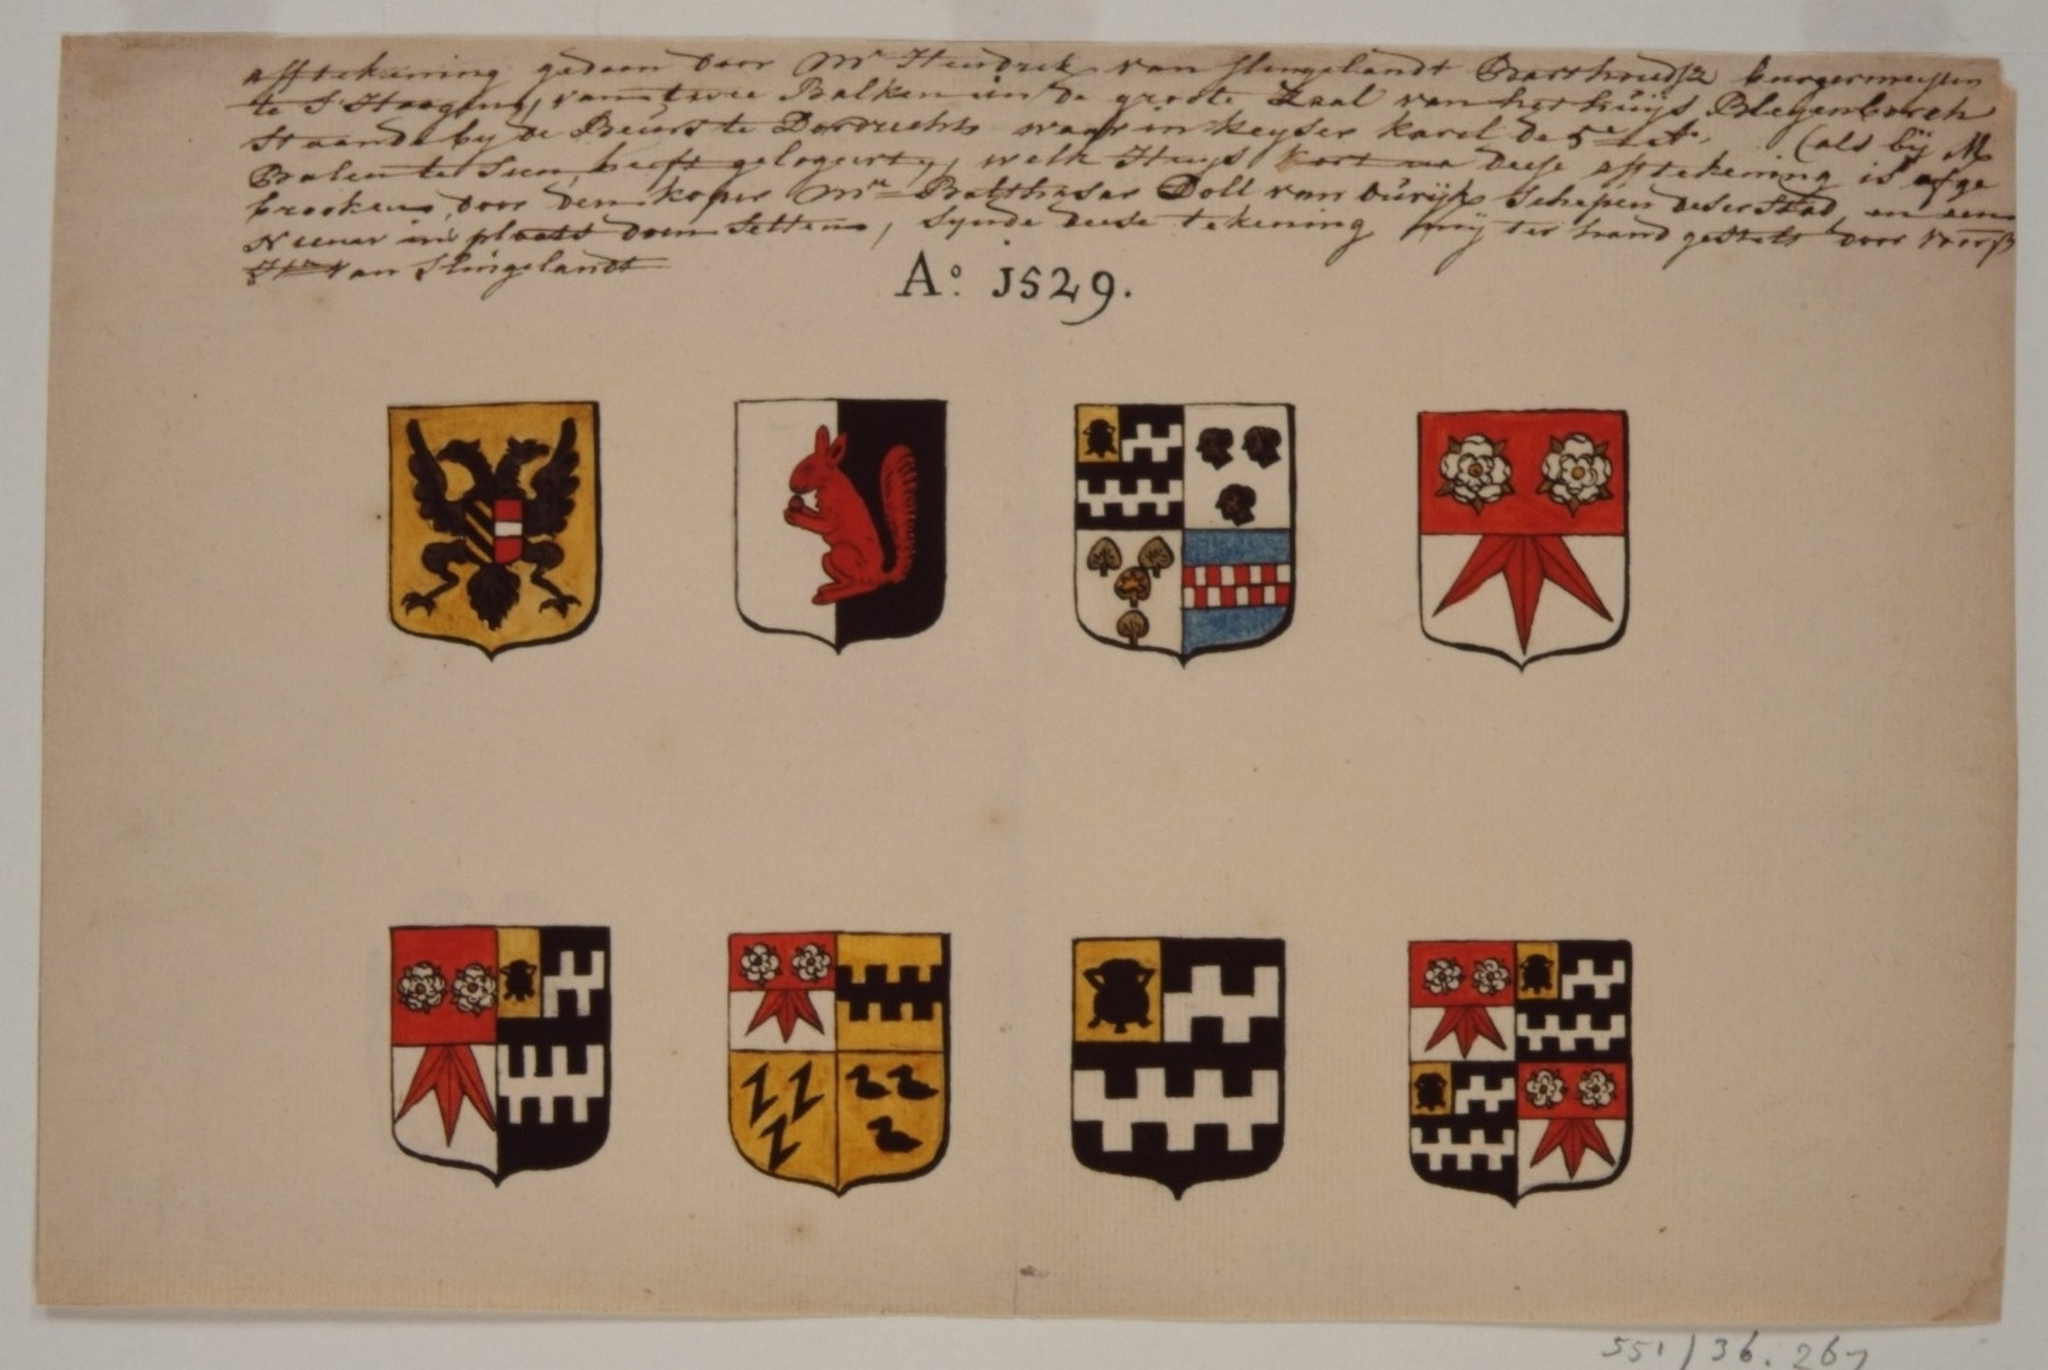 afftekening gedaen door Mr Hendrik van Slingelandt Barthoudsz burgermeyster
te S'Haagen, van twee Balken in de groote Zaal van het huijs Bleyenborch
staande by de Beurs te Dordrecht waar in keyser karel de 5e (als bij M
Balen te sien, heeft gelogeert, welk Huys kort na deese afftekening is afge
brooken door den koper Mr Balthasar Doll van ourijk Schepen deser Stad en een
Nieuw in plaats doen setten, synde deese tekening mij ter hand gestelt door
van Slingelandt
Ao. 1529.
551 / 36. 267